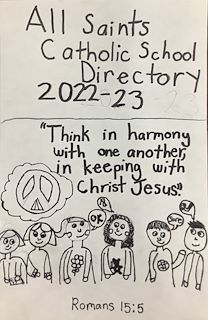 All Saints
Catholic School
Directory
2022-23
"Think in harmony
with one another,
in keeping with
Christ Jesus."
Romans 15:5